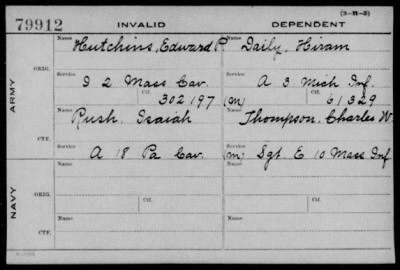 (3-M-3)
79912 INVALID DEPENDENT
Name Hutchins, Edward P. Name Daily, Hiram
ORIG.
Service Service
I 2 Mass Cav. A 3 Mich Inf.
Ctf. 302197 (M) Ctf. 61329
ARMY
Name Rush, Isaiah Name Thompson, Charles W
CTF.
Service Service
A 18 Pa Cav. (M) Sgt. E 10 Mass Inf
Name Ctf. Name Ctf.
ORIG.
NAVY
Name Name
CTF.